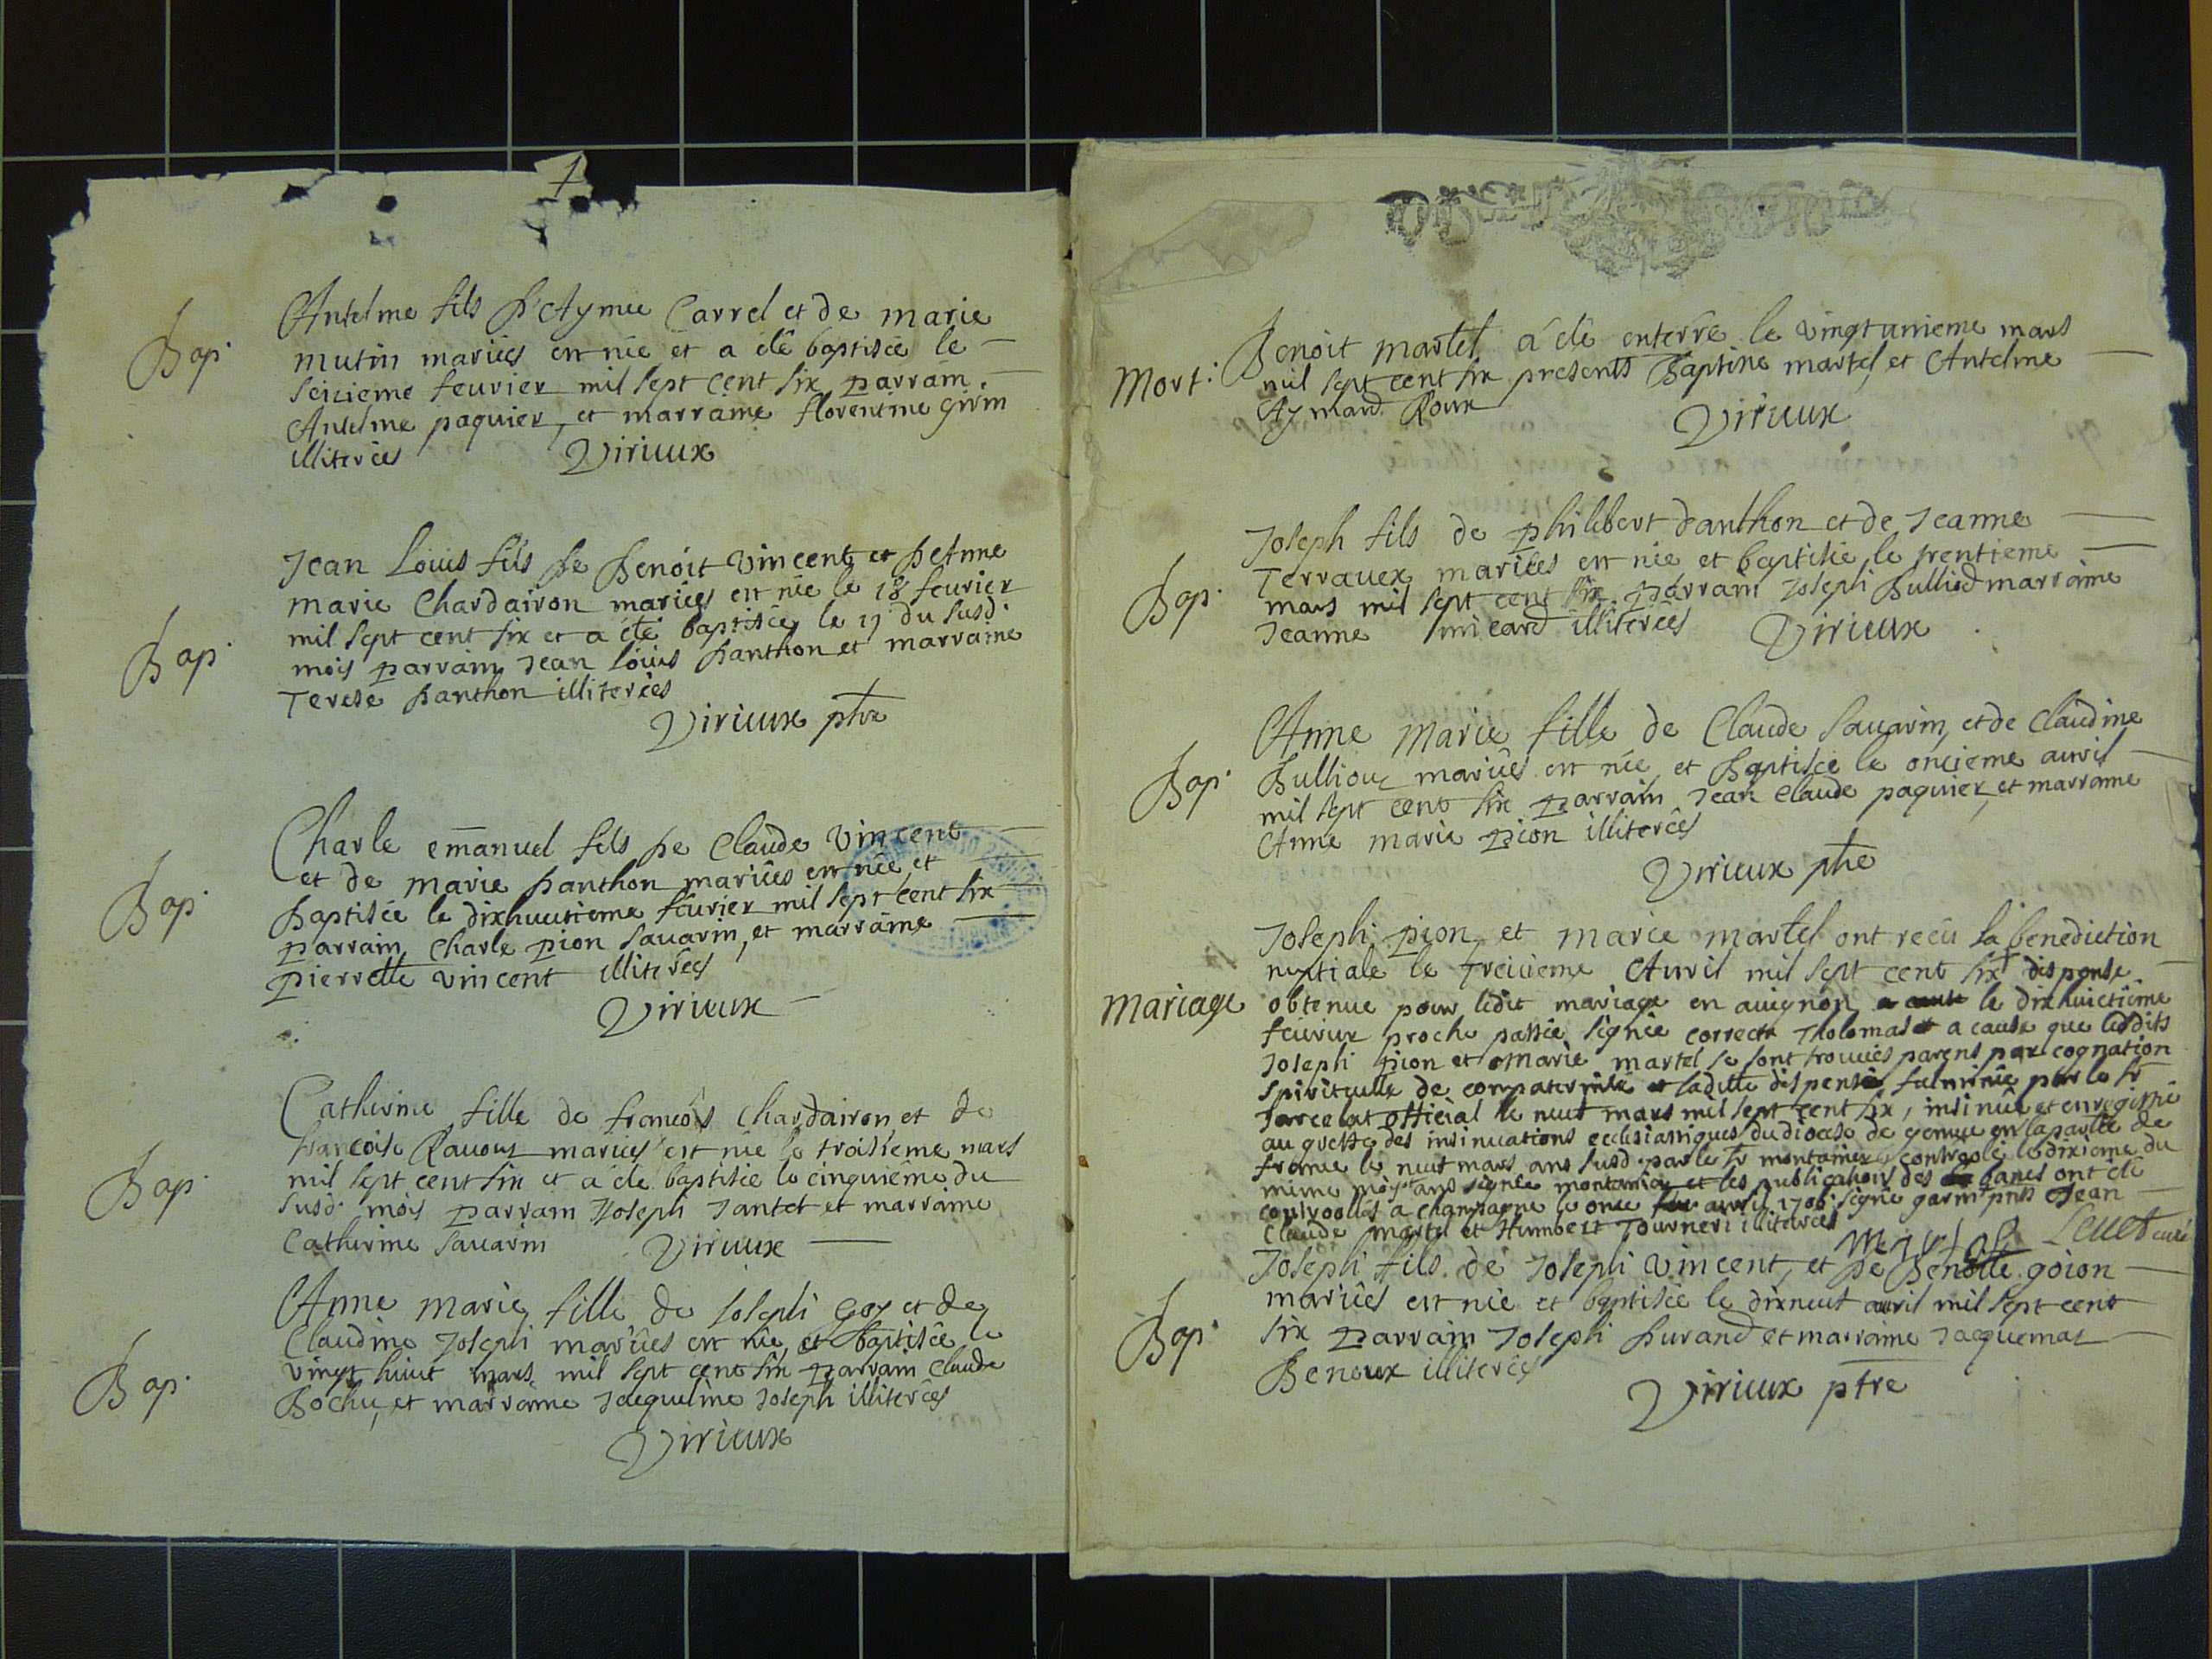 1
Bap.
Antelme fils D'Aymee Carrel et de marie
mutin mariées est née et a êté baptisée le
seizieme feurier mil sept cent six parrain
Antelme paquier, et marraine florentine girin
illiterées Virieux
Bap.
Jean Louis fils De Benoit Vincent et De Anne
marie Chardairon mariées est née le 18 feurier
mil sept cent six et a été baptisée le 19 du susd.
mois parrain Jean Louis Danthon et marraine
Terese Danthon illiterées
Virieux ptre
Bap.
Charle emanuel fils De Claude Vincent
et de marie Danthon mariées est née et
Baptisée le dixhuutieme feurier mil sept cent six
parrain Charle pion Sauarin, et marraine
pierrette Vincent illiterées
Virieux
Bap.
Catherine fille de francois Chardairon et de
francoise Rauoux mariees est née le troisieme mars
mil sept cent six et a êté baptisée le cinquième du
susd. mois parrain Joseph Jantet et marraine
Catherine Sauarin Virieux
Bap.
Anne marie fille de Joseph Goy et de
Claudine Joseph mariées est née et baptisée le
vingt huut mars mil sept cent six parrain Claude
Bochu, et marraine Jacqueline Joseph illiterées
Virieux
Mort.
Benoit martel a êté enterré le vingt unieme mars
mil sept cent six presents Baptiste martel, et Antelme
Aymard Roux Virieux
Bap.
Joseph fils de philibert danthon et de Jeanne
Terrauex mariées est née et baptisée le trentieme
mars mil sept cent six parrain Joseph Bulliod marraine
Jeanne micard illiterées Virieux
Bap.
Anne Marie fille de Claude Sauarin, et de Claudine
Bullioux mariées est née et Baptisée le oncieme auril
mil sept cent six parrain Jean Claude paquier, et marraine
Anne marie pion illiterées
Virieux ptre
Mariage
Joseph pion et marie martel ont reçu la benediction
nuptiale le treizieme Auril mil sept cent six dispense
obtenue pour ledit mariage en auignon le dixhuictième
feurier proche passée signée correcte Tholomas a cause que lesdits
Joseph pion et Marie martel se sont trouuées parens par cognation
spirituelle de compaternité et ladite dispense fulminée par le sr
Jarcelat official le neuf mars mil sept cent six, insinuée et enregistrée
au greffe des insinuations ecclesiastiques du diocese de geneue en la partie de
france le neuf mars ans susd. par le sr montanier controlé le dixieme du
mème moys ans signée montanier et les publications des bancs ont êté
controollés a Champagne le once auril 1706 signé garin pnts Jean
Claude martel et Humbert Tournery illiterées
Bap.
Joseph fils de Joseph Vincent, et De Benoite goion
mariées est née et baptisée le dixneuf auril mil sept cent
six parrain Joseph Durand et marraine Jacquemaz
Beneux illiterées
Virieux ptre